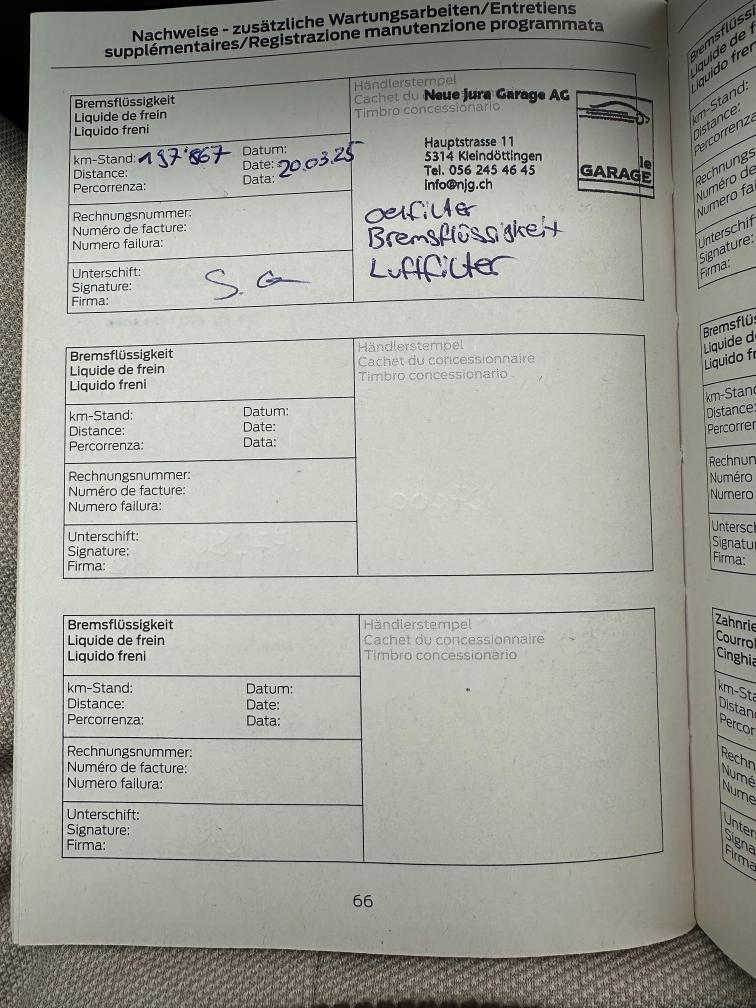 Nachweise - zusätzliche Wartungsarbeiten/Entretiens
supplémentaires/Registrazione manutenzione programmata
Bremsflüssigkeit
Liquide de frein
Liquido freni
km-Stand: 197'867 Datum:
Distance: Date: 20.03.25
Percorrenza: Data:
Rechnungsnummer:
Numéro de facture:
Numero failura:
Unterschift:
Signature:
Firma:
Händlerstempel
Cachet du
Timbro concessionario
Neue Jura Garage AG
Hauptstrasse 11
5314 Kleindöttingen
Tel. 056 245 46 45
info@njg.ch
le
GARAGE
oelfilter
Bremsflüssigkeit
Luftfilter
Bremsflüssigkeit
Liquide de frein
Liquido freni
km-Stand: Datum:
Distance: Date:
Percorrenza: Data:
Rechnungsnummer:
Numéro de facture:
Numero failura:
Unterschift:
Signature:
Firma:
Händlerstempel
Cachet du concessionnaire
Timbro concessionario
Bremsflüssigkeit
Liquide de frein
Liquido freni
km-Stand: Datum:
Distance: Date:
Percorrenza: Data:
Rechnungsnummer:
Numéro de facture:
Numero failura:
Unterschift:
Signature:
Firma:
Händlerstempel
Cachet du concessionnaire
Timbro concessionario
66
Liquide de f
Liquido fren
km-Stand:
Distance:
Percorrenza
Signature:
Firma:
Liquido f
Distance:
Numéro
Numero
Firma: